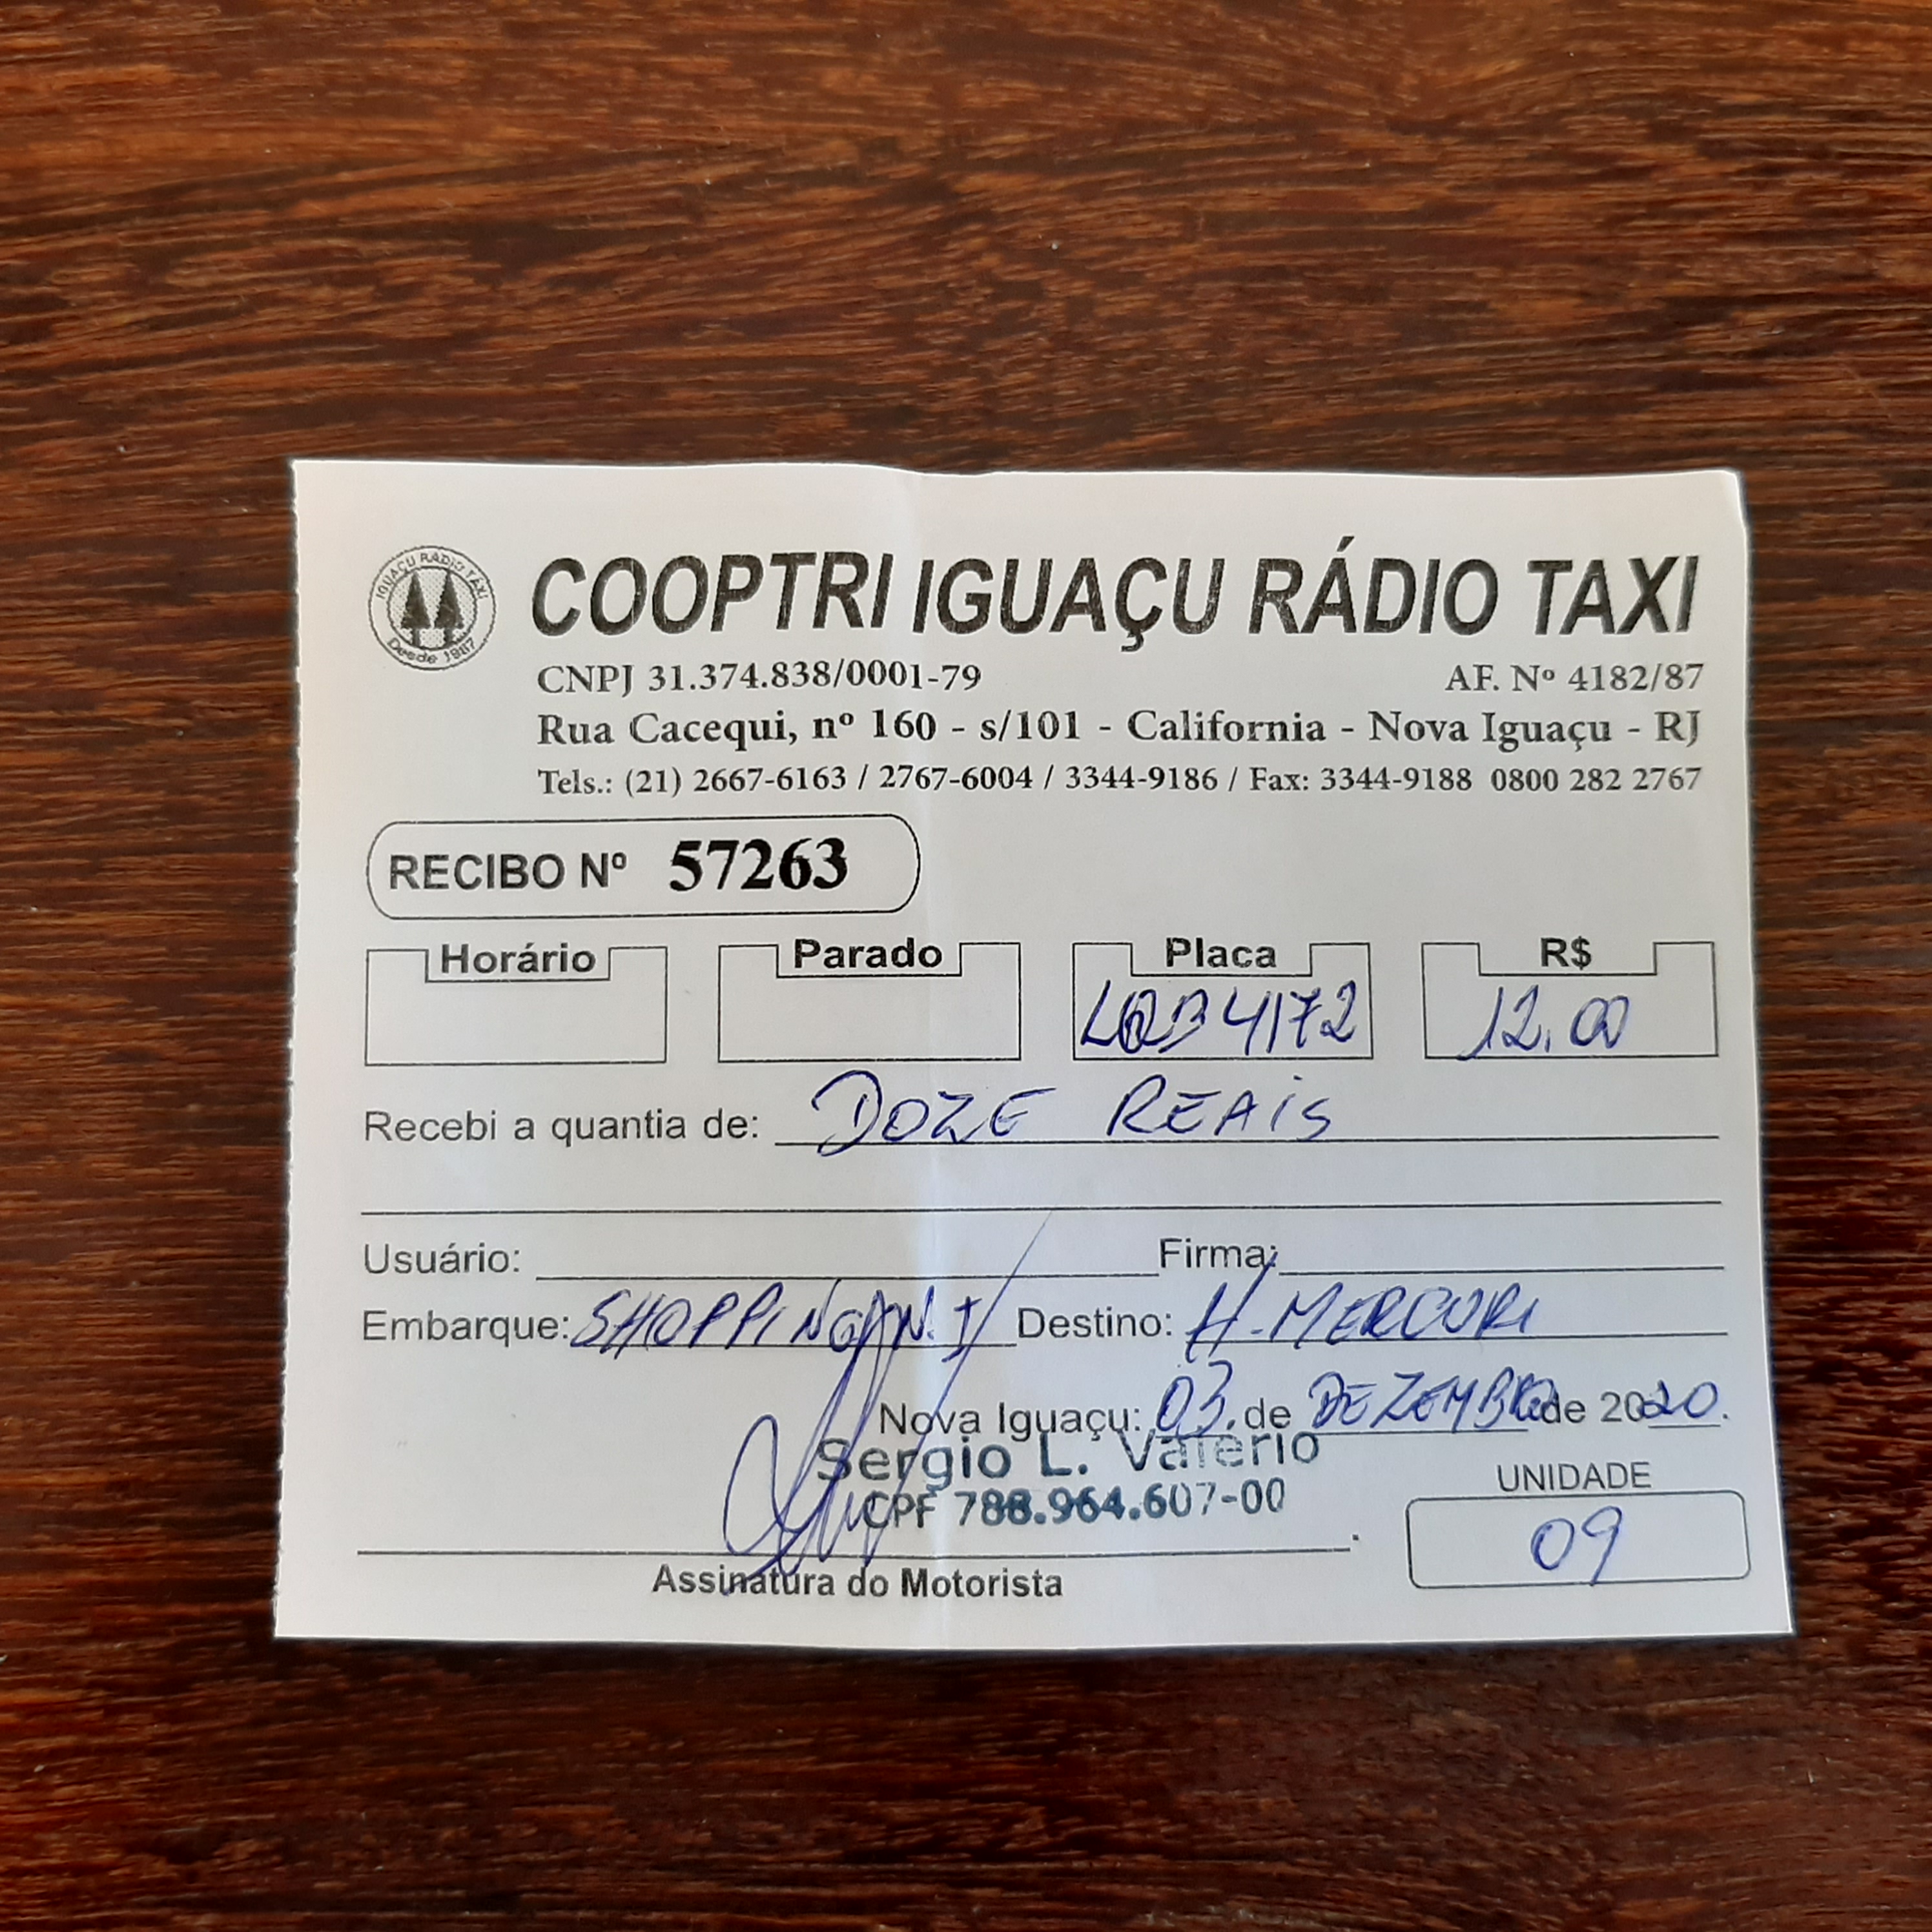 COOPTRI IGUAÇU RÁDIO TAXI
IGUAÇU RÁDIO TÁXI
Desde 1987
CNPJ 31.374.838/0001-79 AF. Nº 4182/87
Rua Cacequi, nº 160 - s/101 - California - Nova Iguaçu - RJ
Tels.: (21) 2667-6163 / 2767-6004 / 3344-9186 / Fax: 3344-9188 0800 282 2767
RECIBO Nº 57263
Horário Parado Placa R$
4172 12,00
Recebi a quantia de: DOZE REAIS
Usuário: Firma:
Embarque: SHOPPING N.I Destino: H-MERCURI
Nova Iguaçu: 03 de DEZEMBRO de 2020.
Sergio L. Valério
CPF 788.964.607-00
UNIDADE
09
Assinatura do Motorista